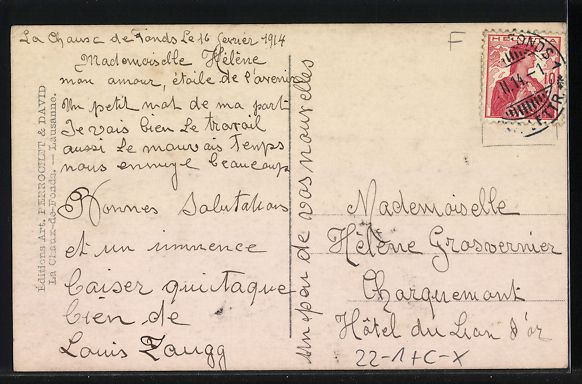 La Chausc de Fonds Le 16 fevrier 1914
Mademoiselle Hélène
mon amour, étoile de l'avenir
Un petit mot de ma part
Je vais bien le travail
aussi Le mauvais Temps
nous ennuye beaucoup
Bonnes Salutations
et un immence
Baiser qui taque
bien de
Louis Zaugg
Un peu de vos nouvelles
Éditions Art. PERROCHET & DAVID
La Chaux-de-Fonds. — Lausanne.
F
HELVETIA
10
FONDS
II.14.-1
Mademoiselle
Hélène Grosvernier
Charquemont
Hôtel du Lion d'or
22-1+C-X